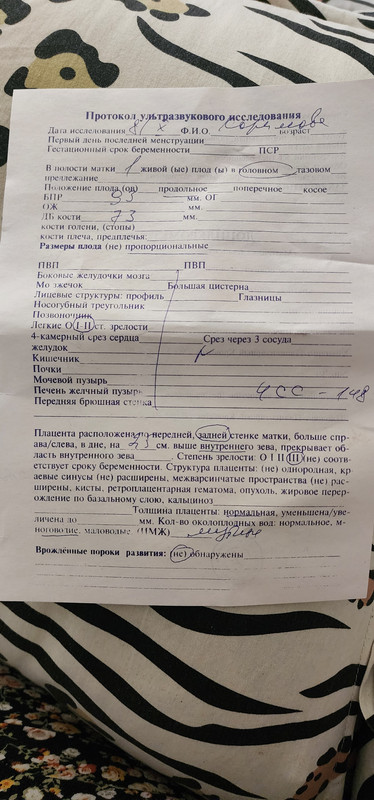 Протокол ультразвукового исследования
Дата исследования 8/X Ф.И.О. возраст
Первый день последней менструации
Гестационный срок беременности ПСР
В полости матки 1 живой (ые) плод (ы) в головном, тазовом
предлежание
Положение плода (ов) продольное поперечное косое
БПР 93 мм. ОГ
ОЖ мм.
ДБ кости 73 мм.
кости голени, (стопы)
кости плеча, предплечья
Размеры плода (не) пропорциональные
ПВП ПВП
Боковые желудочки мозга
Мозжечок Большая цистерна
Лицевые структуры: профиль Глазницы
Носогубный треугольник
Позвоночник
Легкие О I-II ст. зрелости
4-камерный срез сердца Срез через 3 сосуда
желудок N
Кишечник
Почки
Мочевой пузырь
Печень желчный пузырь ЧСС - 148
Передняя брюшная стенка
Плацента расположена по передней, задней стенке матки, больше спр-
ава/слева, в дне, на см. выше внутреннего зева, прекрывает об-
ласть внутреннего зева Степень зрелости: О I II III (не) соотв-
етствует сроку беременности. Структура плаценты: (не) однородная, кр-
аевые синусы (не) расширены, межварсинчатые пространства (не) рас-
ширены, кисты, ретроплацентарная гематома, опухоль, жировое перер-
ождение по базальному слою, кальциноз
Толщина плаценты: нормальная, уменьшена/уве-
личена до мм. Кол-во околоплодных вод: нормальное, м-
ноговодие, маловодие (ИМЖ)
Врождённые пороки развития: (не) обнаружены